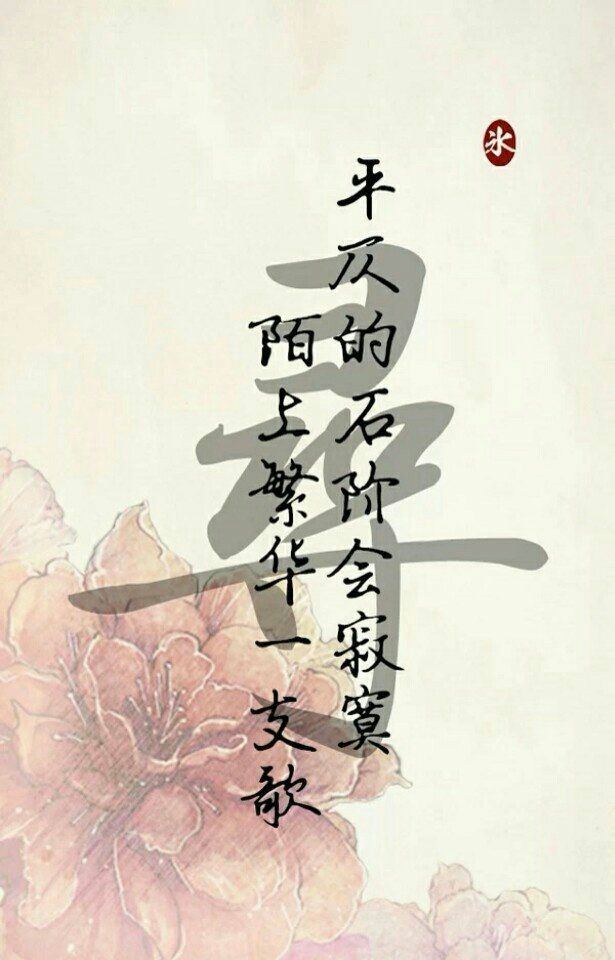 氷
平仄的石阶会寂寞
陌上繁华一支歌
寻